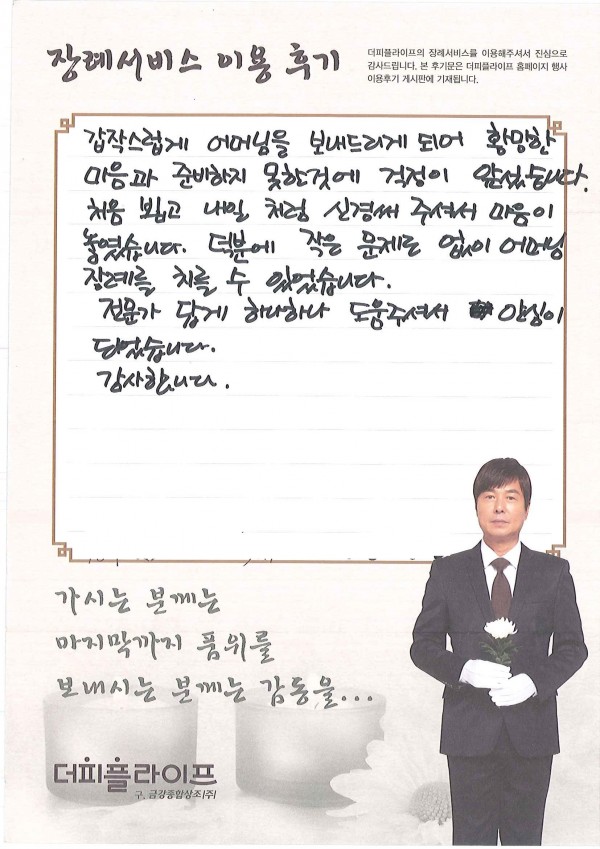 장례서비스 이용 후기
더피플라이프의 장례서비스를 이용해주셔서 진심으로
감사드립니다. 본 후기문은 더피플라이프 홈페이지 행사
이용후기 게시판에 기재됩니다.
갑작스럽게 어머님을 보내드리게 되어 황망한
마음과 준비하지 못한것에 걱정이 앞섰습니다.
처음 뵙고 내일 처럼 신경써 주셔서 마음이
놓였습니다. 덕분에 작은 문제도 없이 어머님
장례를 치를 수 있었습니다.
전문가 답게 하나하나 도움주셔서 안심이
되었습니다.
감사합니다.
가시는 분께는
마지막까지 품위를
보내시는 분께는 감동을...
더피플라이프
구. 금강종합상조(주)